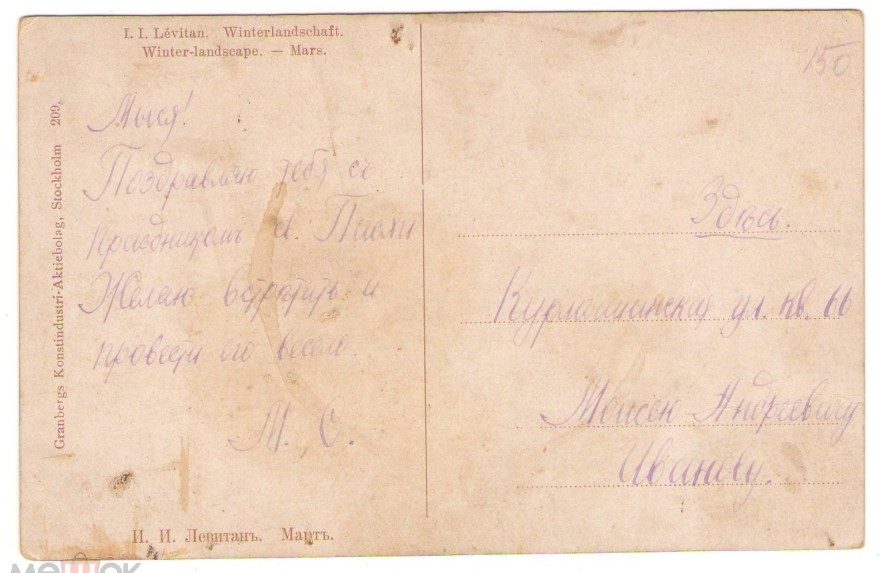 I. I. Lévitan. Winterlandschaft.
Winter-landscape. — Mars.
Granbergs Konstindustri-Aktiebolag, Stockholm 209.
150
Поздравляю тебя съ
праздникомъ св. Пасхи
Желаю встрѣтить и
провести его весело.
М. О.
И. И. Левитанъ. Мартъ.
Здѣсь.
ул. кв. 66
Моисею Андреевичу
Иванову.
мешок